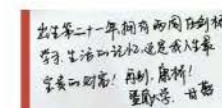 出生第二十一年拥有两周在剑桥
学习、生活的记忆,还是我人生最
宝贵的财富!再别,康桥!
大学